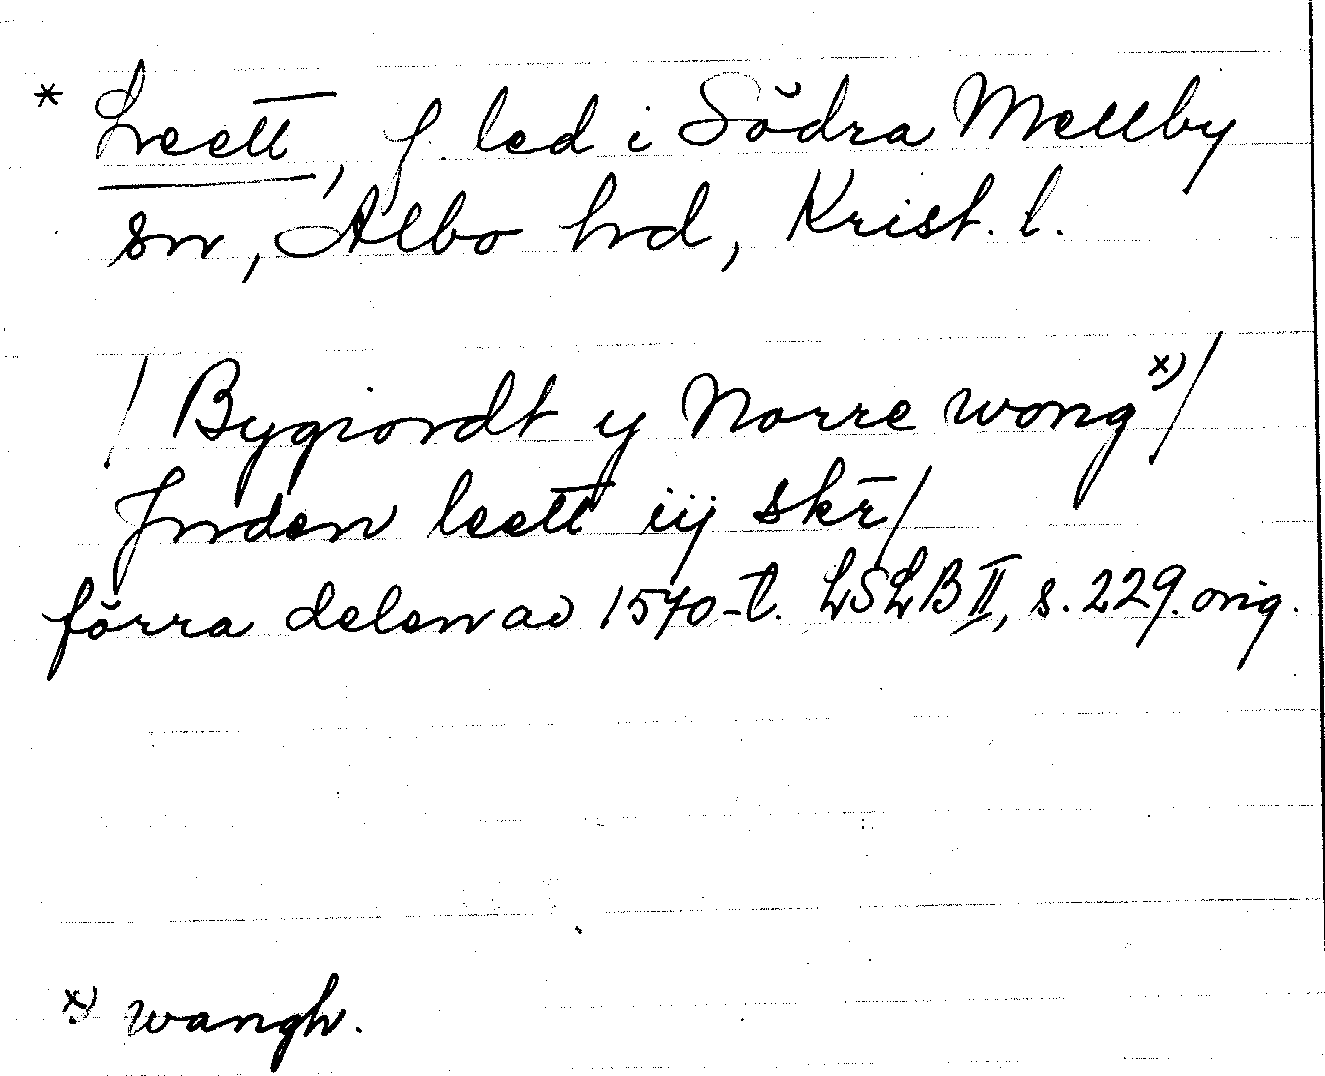 * Leett, f. led i Södra Mellby
sn, Albo hd, Krist. l.
/ Bygiordt y Norre wong x) /
Jnden leett iij skr̄ /
förra delen av 1570-t. LSLB II, s. 229. orig.
x) wangh.